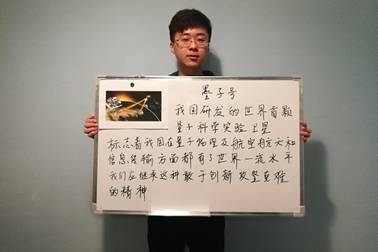 墨子号
我国研发的世界首颗
量子科学实验卫星
标志着我国在量子物理及航空航天和
信息传输方面都有了世界一流水平
我们应继承这种敢于创新攻坚克难
的精神